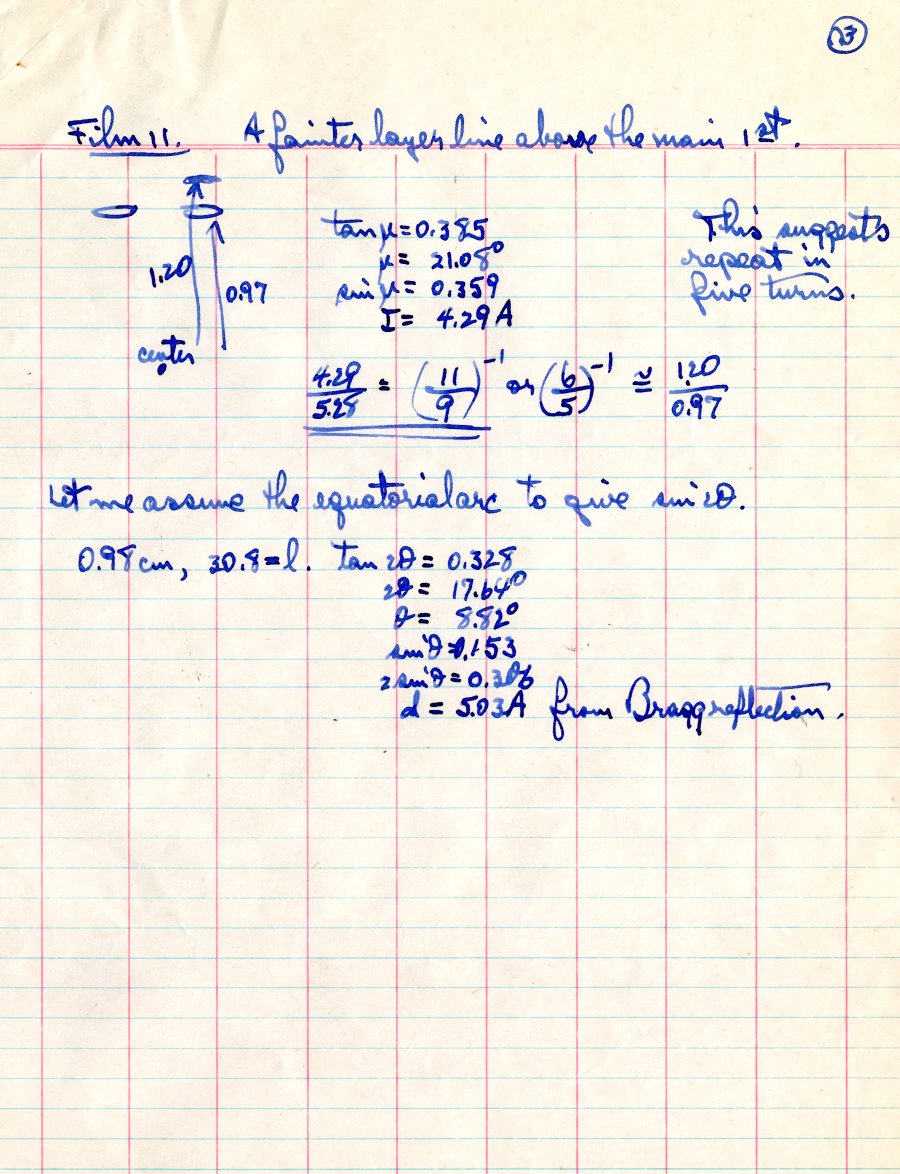 23
Film 11. A fainter layer line above the main 1st.
1.20
0.97
center
tan μ = 0.385
μ = 21.08°
sin μ = 0.359
I = 4.29 A
This suggests
repeat in
five turns.
4.29/5.28 = (11/9)⁻¹ or (6/5)⁻¹ ≅ 1.20/0.97
Let me assume the equatorial arc to give sin 2θ.
0.98 cm, 30.8 = l. tan 2θ = 0.328
2θ = 17.64°
θ = 8.82°
sin θ = 0.153
2 sin θ = 0.306
d = 5.03 A from Bragg reflection.